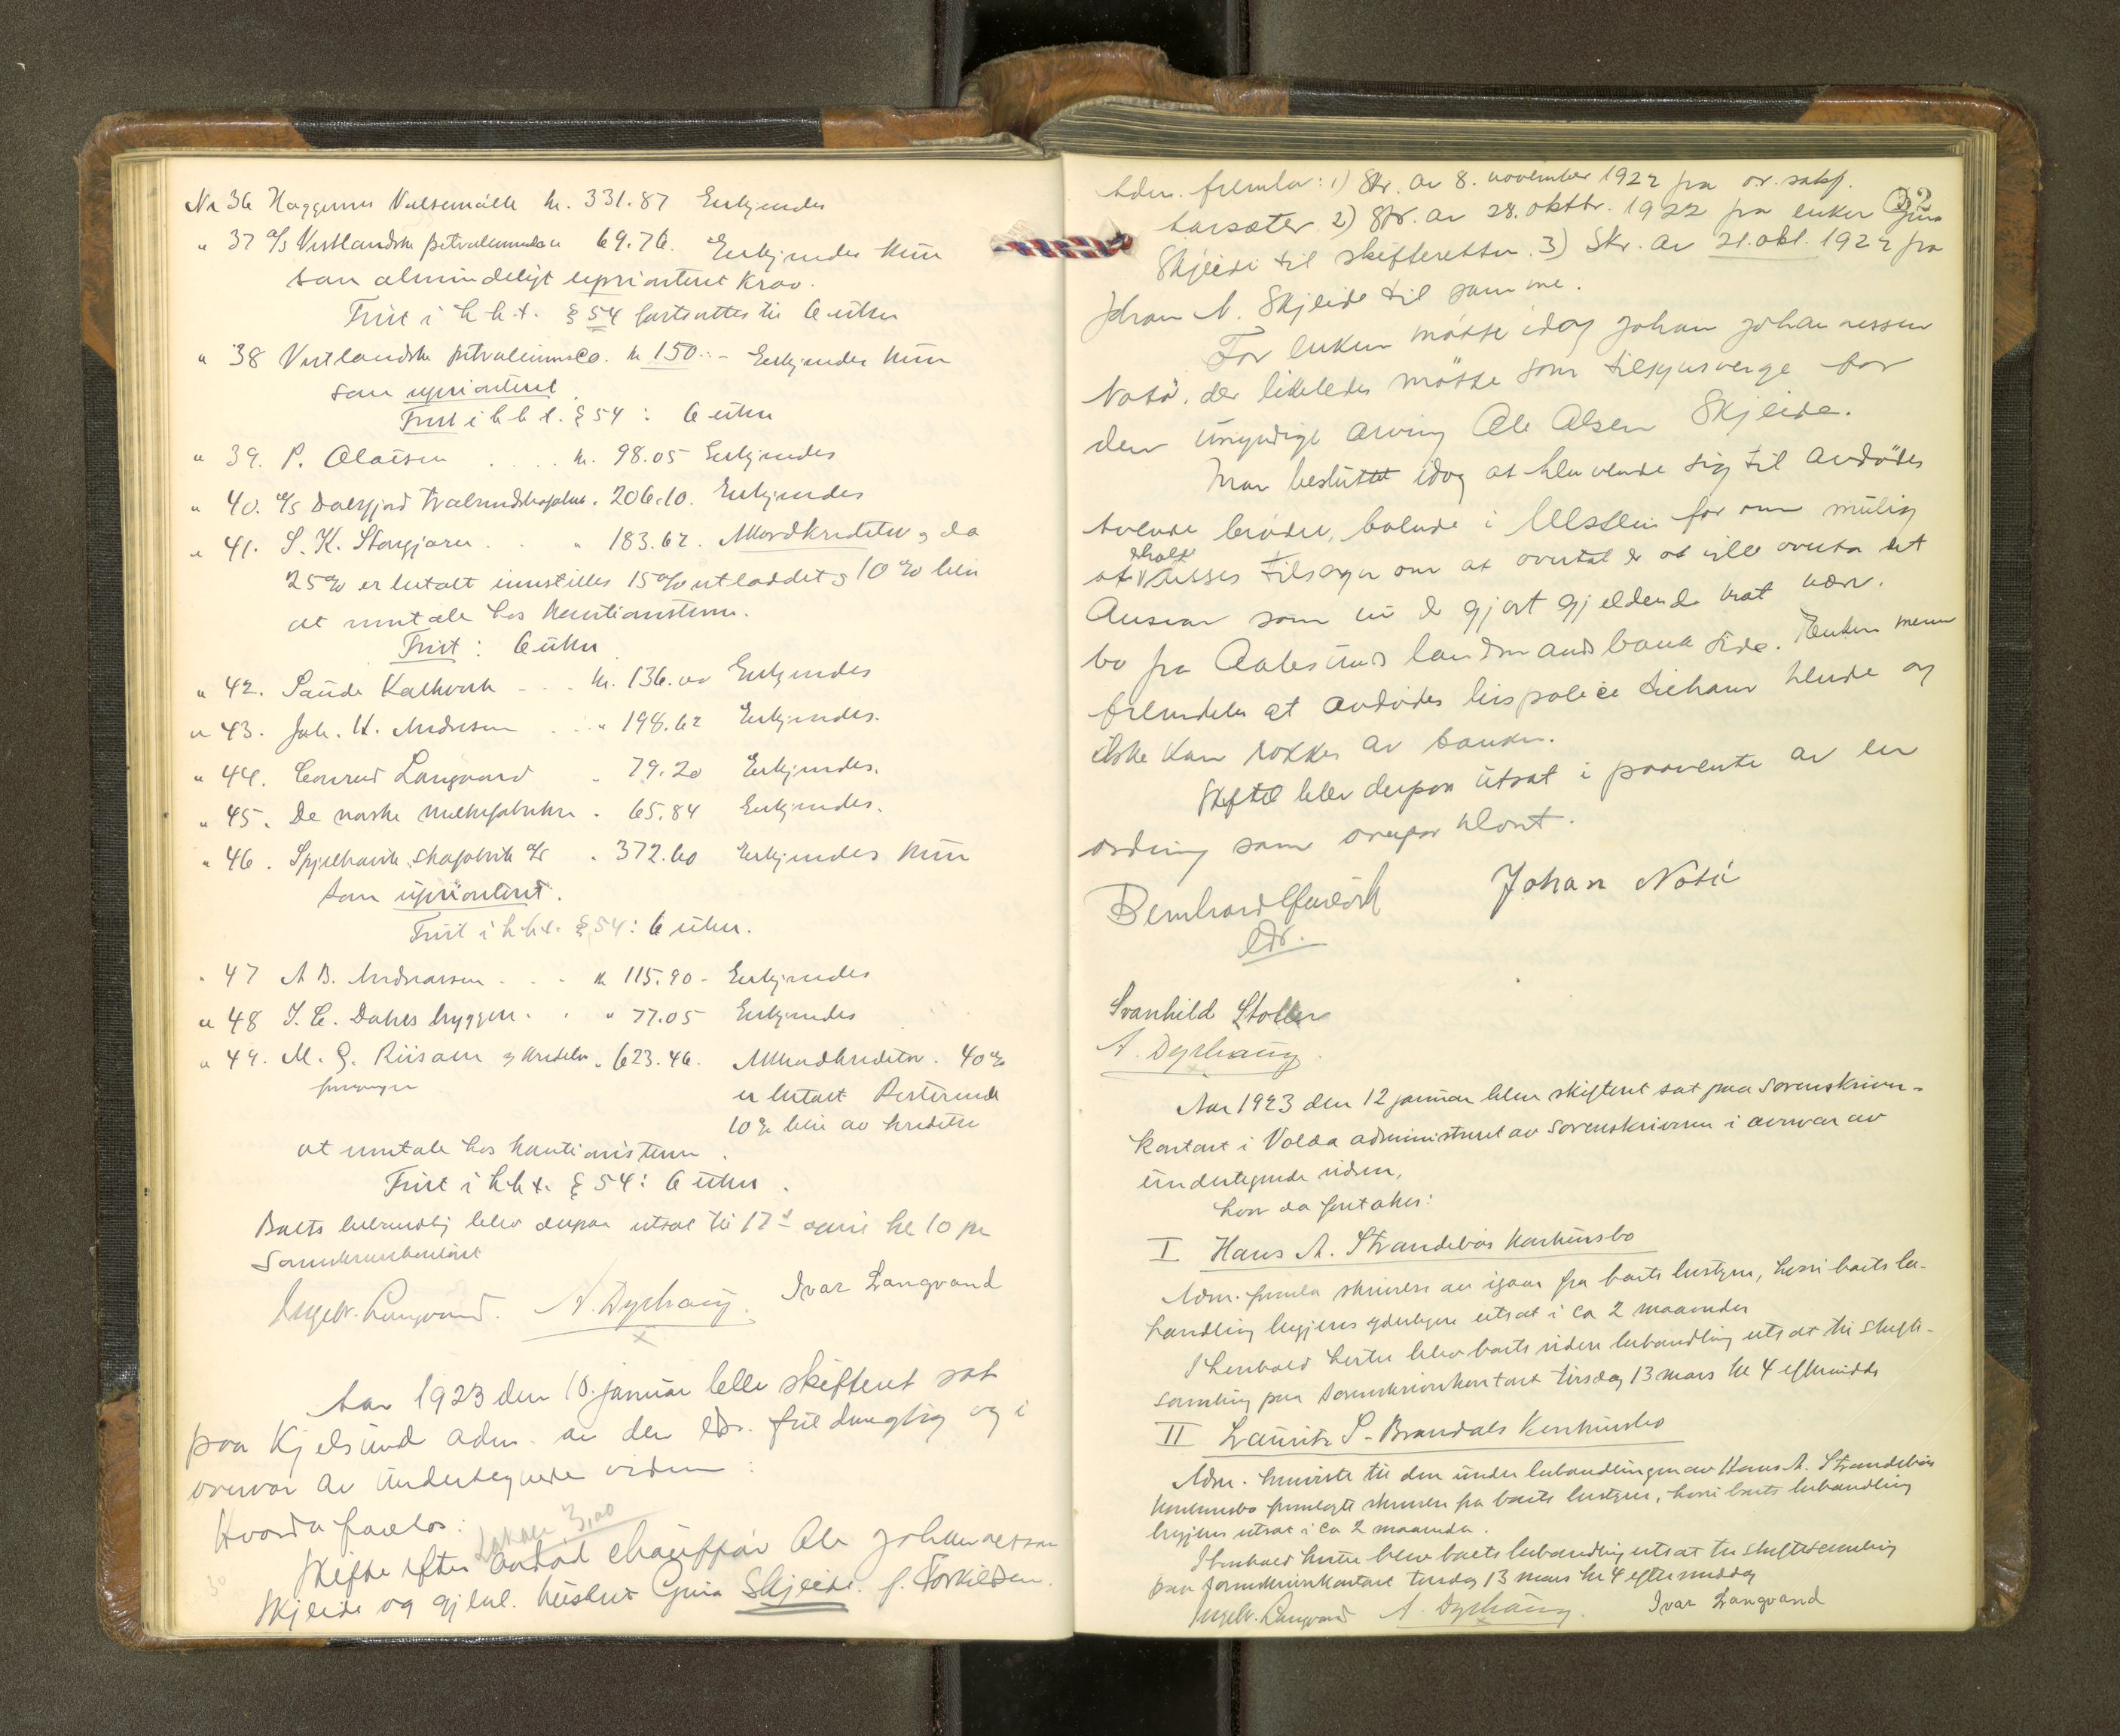 Nr 36 Haggernes Valsemølle kr. 331.87 Erkjendes
" 37 A/S Vestlandske petroleums 69.76. Erkjendes kun
som almindeligt uprioritert krav.
Frist i h.h.t. § 54 fortsættes til 6 uker
" 38 Vestlandske petroleumsco. kr 150.- Erkjendes kun
som uprioritert.
Frist i h.h.t. § 54: 6 uker
" 39. P. Olaisen . . . . kr. 98.05 Erkjendes
" 40. A/S Dalsfjord . 206.10. Erkjendes
" 41. S. K. . . " 183.62. Akkordkreditor og da
25% er betalt innstilles 15% utloddet og 10% blir
at inntale hos kautionistene.
Frist: 6 uker
" 42. Saude Kalkverk - . . kr. 136.00 Erkjendes
" 43. Joh. H. Andresen . . . " 198.62 Erkjendes.
" 44. Conrad Langaard " 79.20 Erkjendes.
" 45. De norske melkefabrikker . 65.84 Erkjendes.
" 46. Spjelkavik skofabrik A/S . 372.60 Erkjendes kun
som uprioritert.
Frist i h.h.t. § 54: 6 uker.
" 47 A B. Andreassen . . . kr 115.90 - Erkjendes
" 48 I. C. Dahls bryggeri. . " 77.05 Erkjendes
" 49. M. G. Riisøen . 623.46. Akkordkreditor. 40%
er betalt Resterende
10% blir av kreditor
at inntale hos kautionistene.
Frist i h.h.t. § 54: 6 uker.
Boets behandling blev derpaa utsat til 17d april kl 10 paa
Sorenskriverkontoret
Ingebr. Langvand. A. Dyrhaug. Ivar Langvand
x
Aar 1923 den 10. januar blev skifteret sat
paa Kjelsund adm. av den edsv. fuldmægtig og i
overvær av undertegnede vidner:
Hvorda forelos:
3,00
Skifte efter avdød chauffør Ole Johannessen
Skjeide og gjenl. hustru Gina Skjeide f. Torkildsen.
Adm. fremla: 1) Skr. av 8. november 1922 fra or. sakf.
Aarsæter 2) Skr. av 28. oktbr. 1922 fra enken Gina
Skjeide til skifteretten. 3) Skr. av 21. okt. 1922 fra
Johan N. Skjeide til samme.
For enken møtte idag Johan Johannessen
Notø, der likeledes møtte som tilsynsverge for
den umyndige arving Ole Olsen Skjeide.
Man besluttet idag at henvende sig til avdødes
tvende brødre, boende i Ulstein for om mulig
erholdt
at disses tilsagn om at overtat er at ville overta det
ansvar som nu er gjort gjældende mot nærv.
bo fra Aalesunds landmandsbank side. Enken mener
fremdeles at avdødes livspolice tilhører hende og
ikke kan røkkes av banken.
Skiftet blev derpaa utsat i paavente av en
ordning som ovenfor nævnt.
Bernhard Johan Notø
edsv.
Svanhild Stokken
A. Dyrhaug.
Aar 1923 den 12 januar blev skifteret sat paa sorenskriver-
kontoret i Volda administreret av sorenskriveren i overvær av
undertegnede vidner,
hvor da foretokes:
I Hans A. Strandebøs konkursbo
Adm. fremla skrivelse av igaar fra boets bestyrer, hvori boets be-
handling begjeres yderligere utsat i ca 2 maaneder
I henhold hertil blev boets videre behandling utsat til skifte-
samling paa sorenskriverkontoret tirsdag 13 mars kl 4 eftermiddag
II Laurits P. Brandals konkursbo
Adm. henviste til den under behandlingen av Hans A. Strandebøs
konkursbo fremlagte skrivelse fra boets bestyrer, hvori boets behandling
begjeres utsat i ca 2 maaneder.
I henhold hertil blev boets behandling utsat til skiftesamling
paa sorenskriverkontoret tirsdag 13 mars kl 4 eftermiddag
Ingebr. Langvand A. Dyrhaug. Ivar Langvand